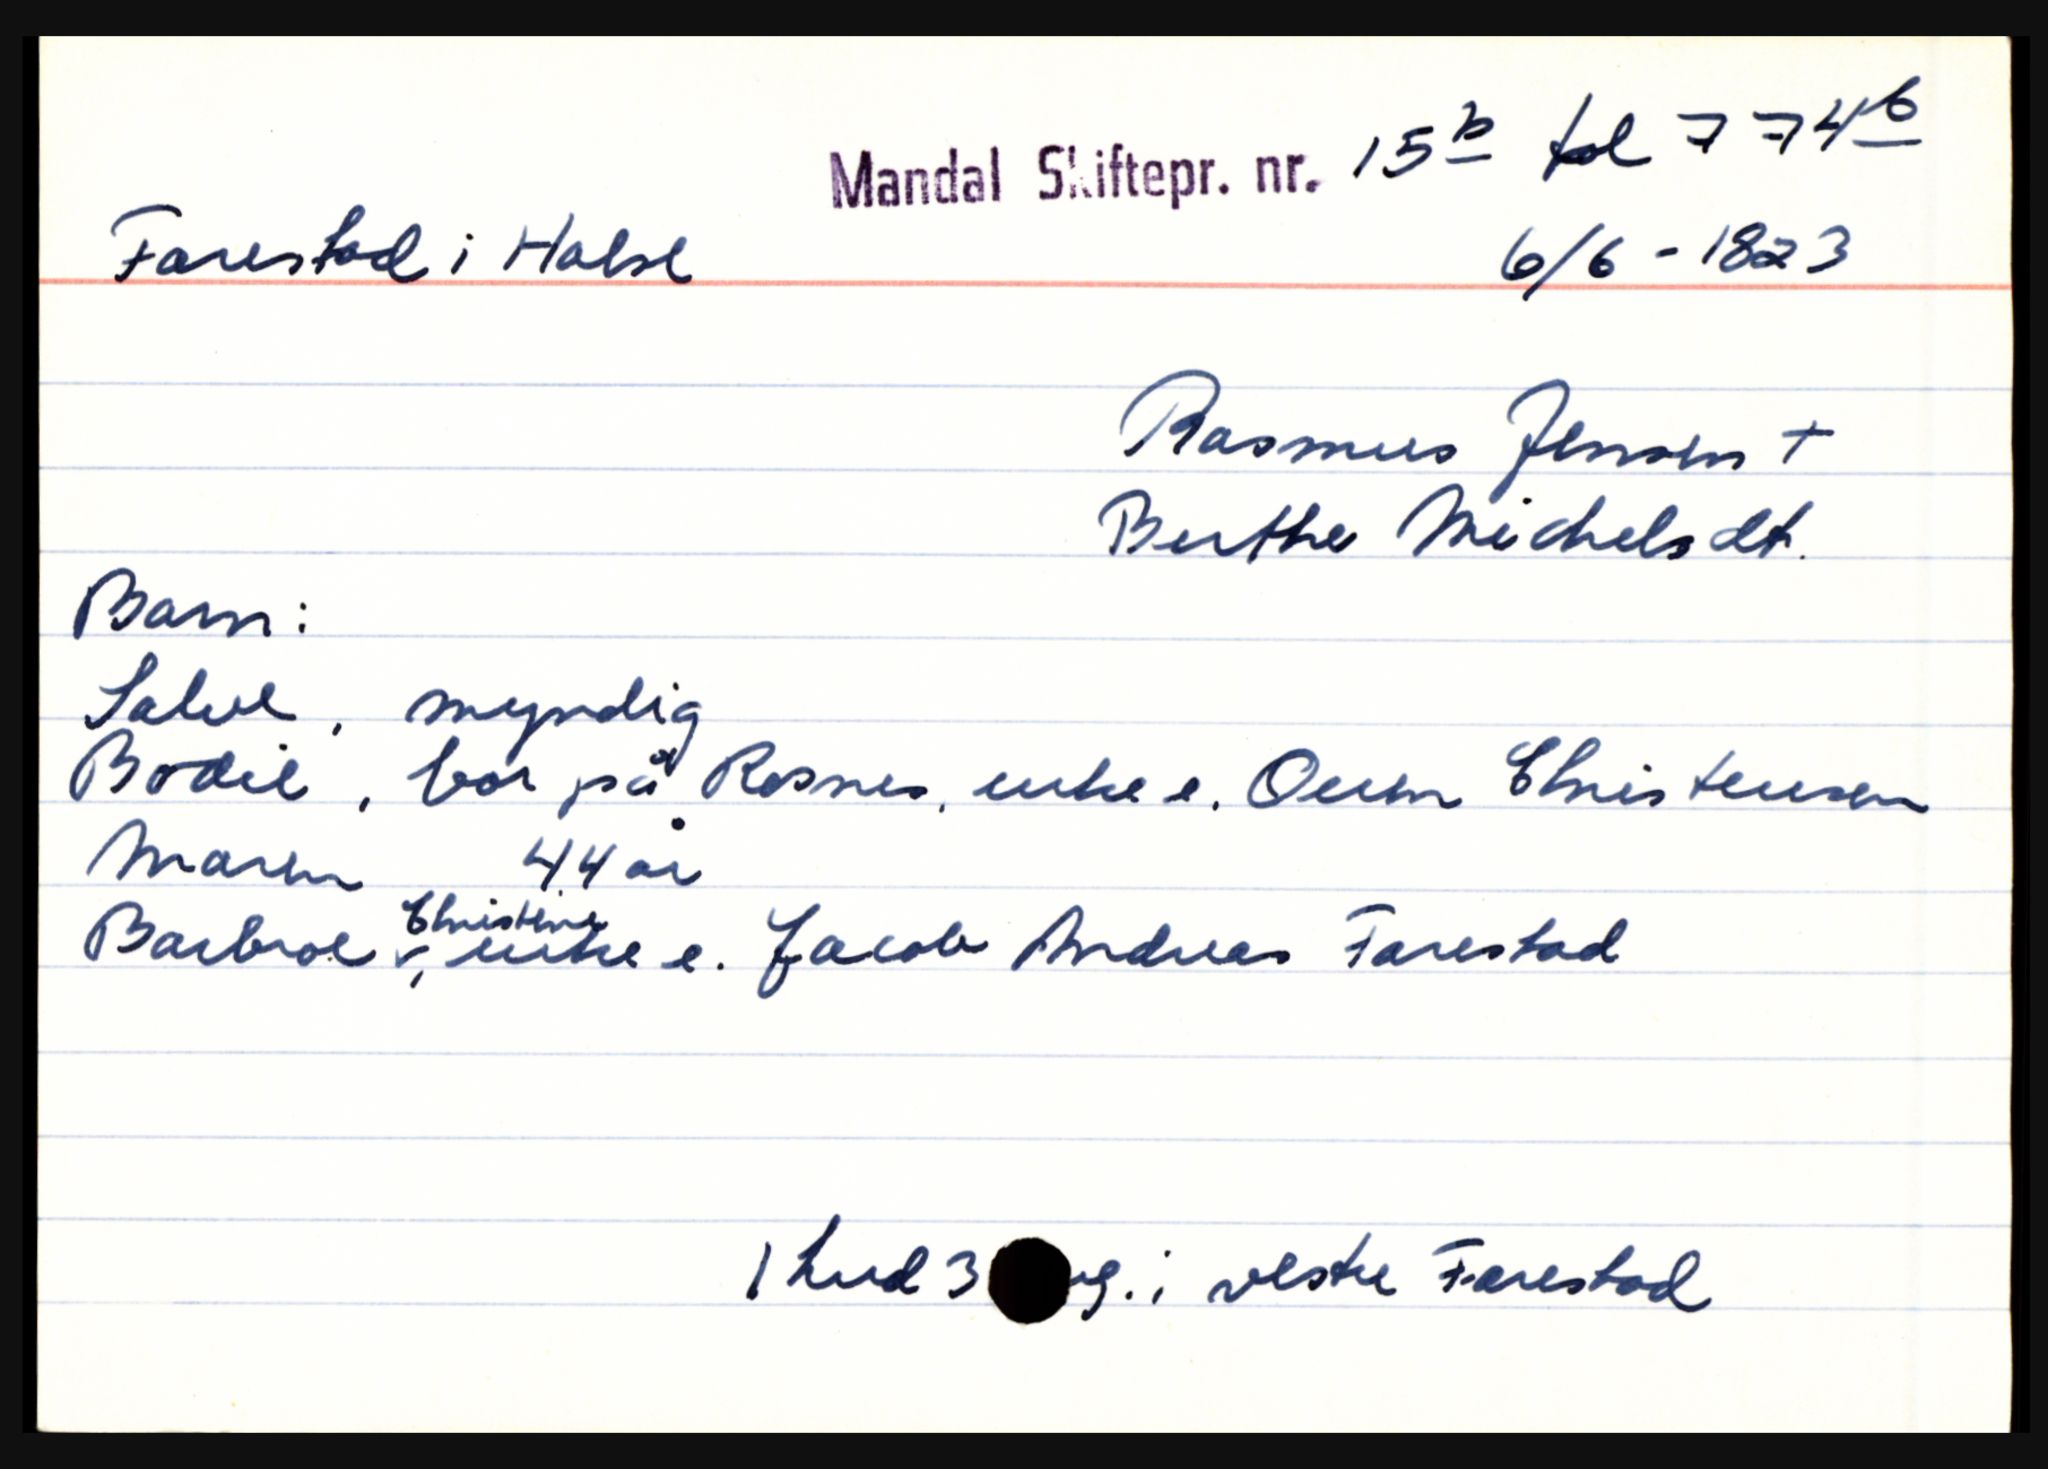 Mandal Skiftepr. nr. 15b fol 774b
Farestad i Halse 6/6 - 1823
Rasmus Jensen +
Berthe Michelsdt.
Barn:
Salve, myndig
Bodil, bor på Rosnes, enke e. Ouen Christensen
Maren 44 år
Barbroe Christine, enke e. Jacob Andreas Farestad
1 hud 3 i vestre Farestad